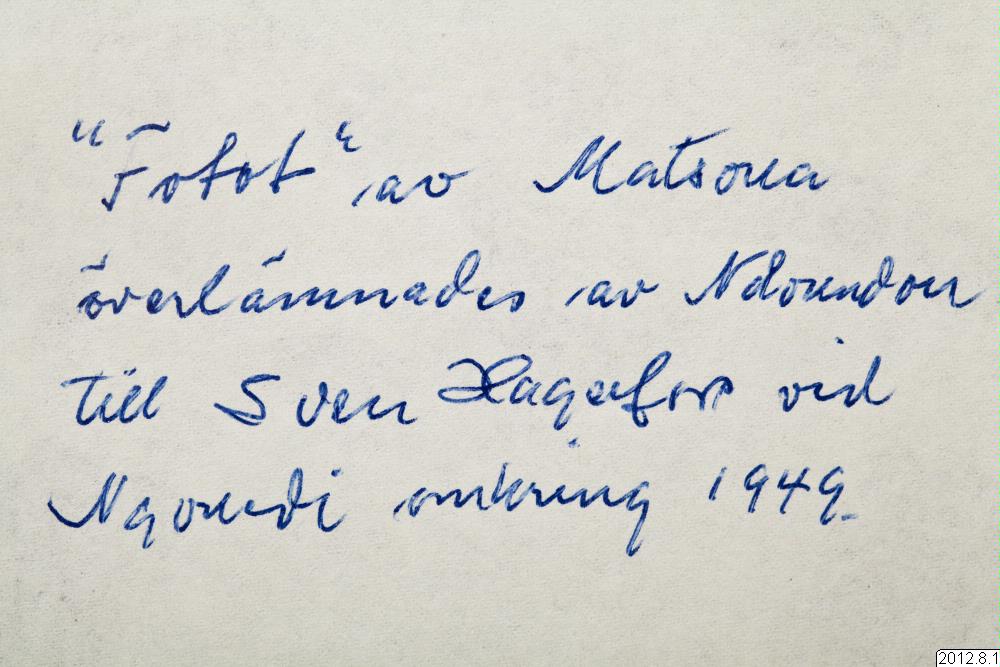 "Fotot" av Matsoua
överlämnades av Ndoundou
till Sven Hagerfors vid
Ngouedi omkring 1949.
2012.8.1